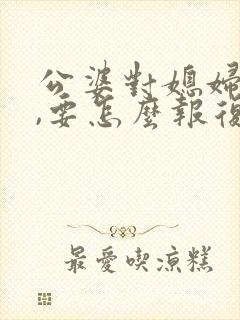 公婆對媳婦
,要怎麼報復
最愛喫涼糕